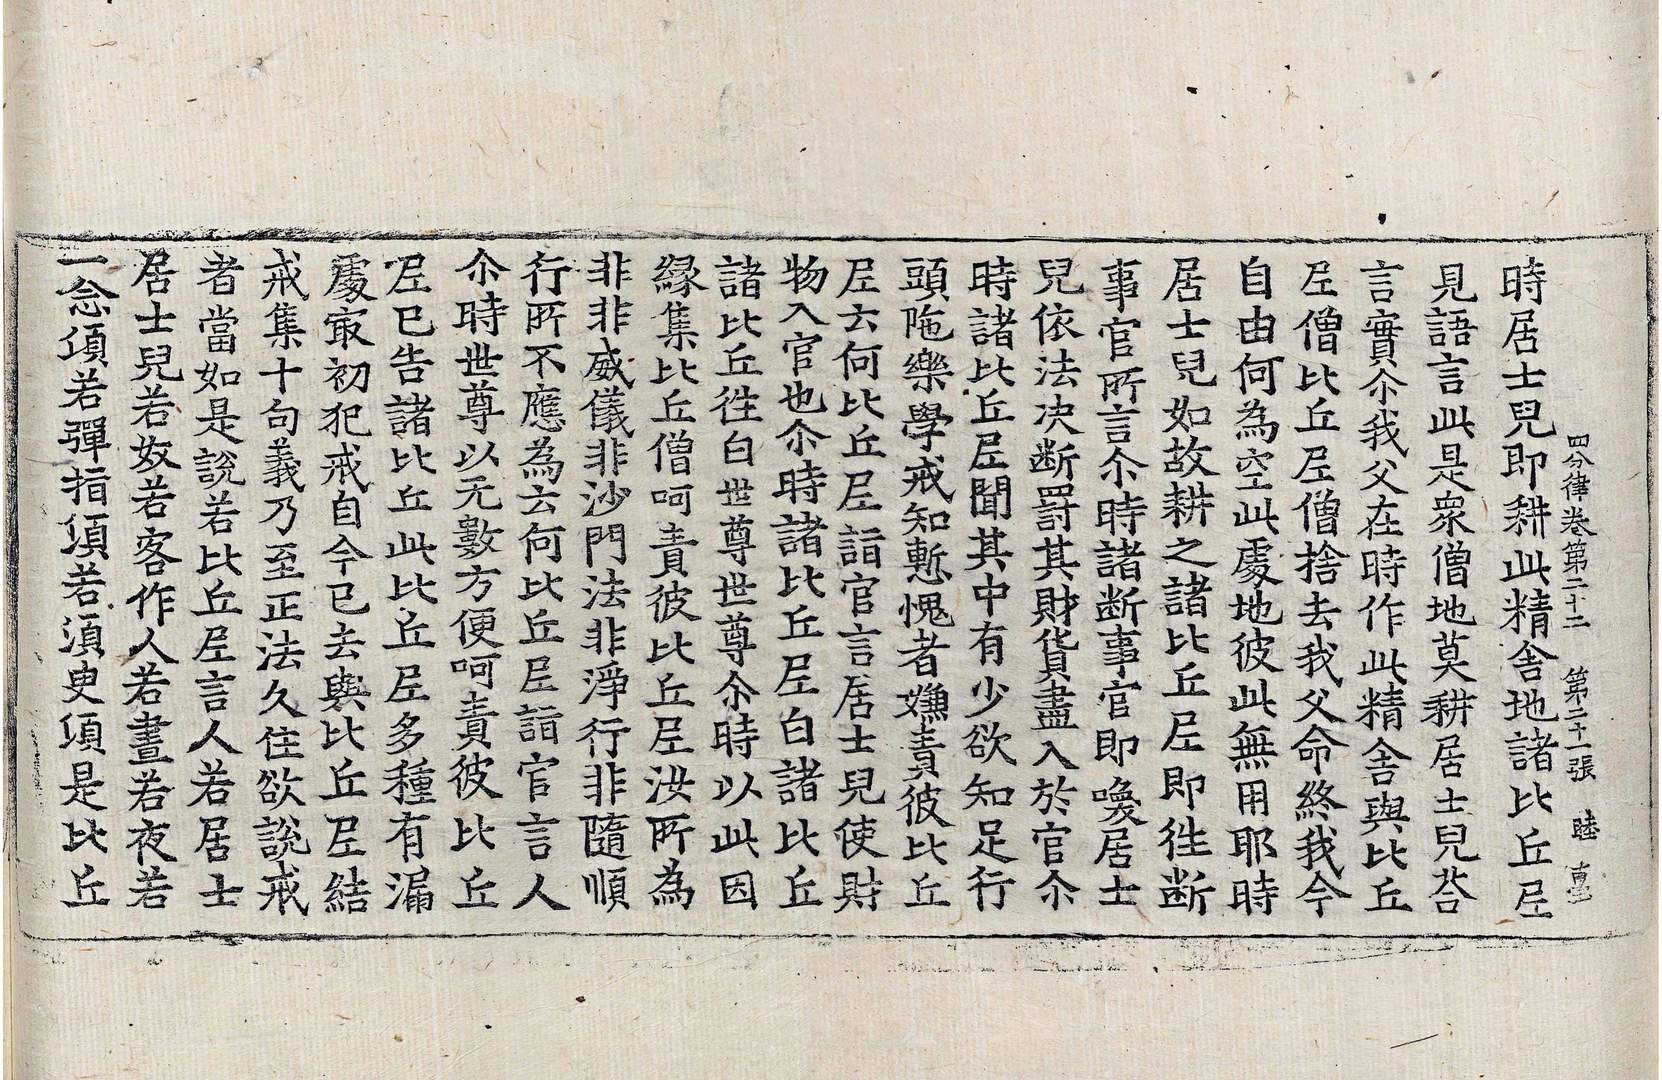 四分律卷第二十二 第二十一張 睦
時居士兒即耕此精舍地諸比丘𡰱
見語言此是衆僧地莫耕居士兒荅
言實尒我父在時作此精舍與比丘
𡰱僧比丘𡰱僧捨去我父命終我今
自由何為空此處地彼此無用耶時
居士兒如故耕之諸比丘𡰱即徃斷
事官所言尒時諸斷事官即喚居士
兒依法决斷罸其財貨盡入於官尒
時諸比丘𡰱聞其中有少欲知足行
頭陁樂學戒知慙愧者嫌責彼比丘
𡰱云何比丘𡰱詣官言居士兒使財
物入官也尒時諸比丘𡰱白諸比丘
諸比丘徃白世尊世尊尒時以此因
緣集比丘僧呵責彼比丘𡰱汝所為
非非威儀非沙門法非淨行非隨順
行所不應為云何比丘𡰱詣官言人
尒時世尊以无數方便呵責彼比丘
𡰱已告諸比丘此比丘𡰱多種有漏
處冣初犯戒自今已去與比丘𡰱結
戒集十句義乃至正法久住欲說戒
者當如是說若比丘𡰱言人若居士
居士兒若奴若客作人若晝若夜若
一念頃若彈指頃若湏臾頃是比丘